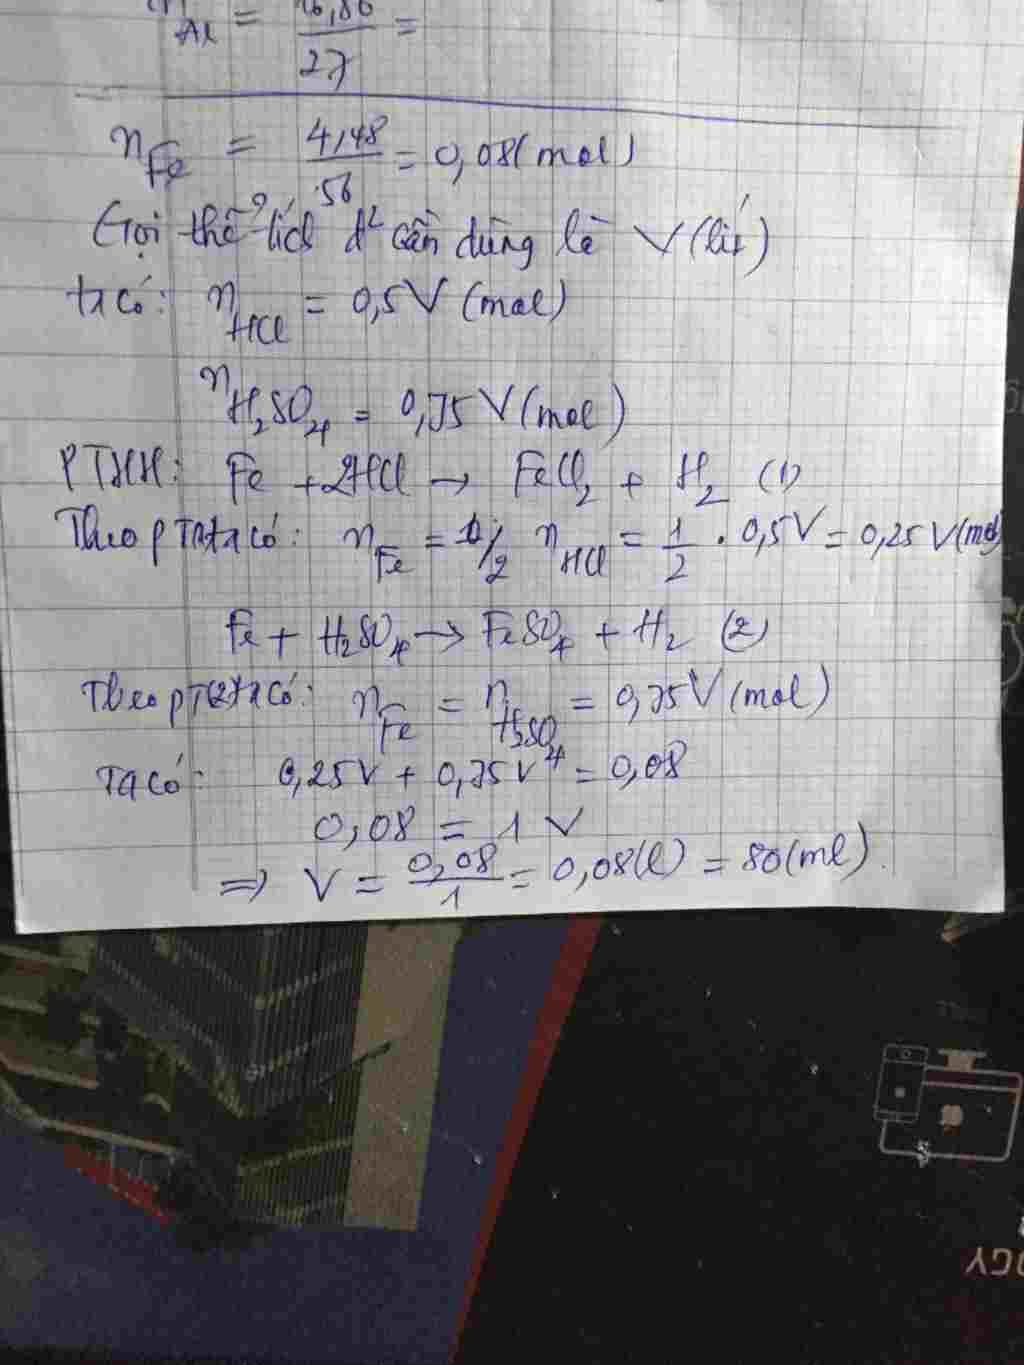 n Al = 16,86 / 27 =
n Fe = 4,48 / 56 = 0,08 (mol)
Gọi thể tích d² cần dùng là V (lít)
ta có: n HCl = 0,5 V (mol)
n H₂SO₄ = 0,75 V (mol)
PTHH: Fe + 2HCl → FeCl₂ + H₂ (1)
Theo PT ta có: n Fe = 1/2 n HCl = 1/2 . 0,5V = 0,25 V (mol)
Fe + H₂SO₄ → FeSO₄ + H₂ (2)
Theo PT(2) ta có: n Fe = n H₂SO₄ = 0,75 V (mol)
Ta có: 0,25V + 0,75V = 0,08
0,08 = 1 V
⇒ V = 0,08 / 1 = 0,08(l) = 80 (ml).